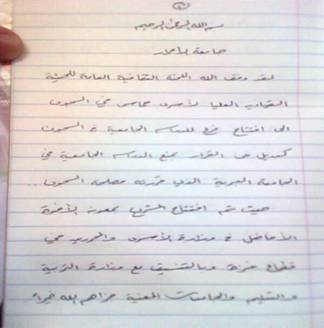 بسم الله الرحمن الرحيم
جامعة الأحرار
لقد وفق الله اللجنة الثقافية العامة للهيئة
القيادية العليا لأسرى حماس في السجون
الى افتتاح فرع للدراسة الجامعية في السجون
كبديل عن القرار بمنع الدراسة الجامعية في
الجامعة العبرية الذي قررته مصلحة السجون ..
حيث تم افتتاح المشروع بمعونة الأخوة
الأفاضل في وزارة الأسرى والمحررين في
قطاع غزة وبالتنسيق مع وزارة التربية
والتعليم والجامعات المعنية جزاهم الله خيراً